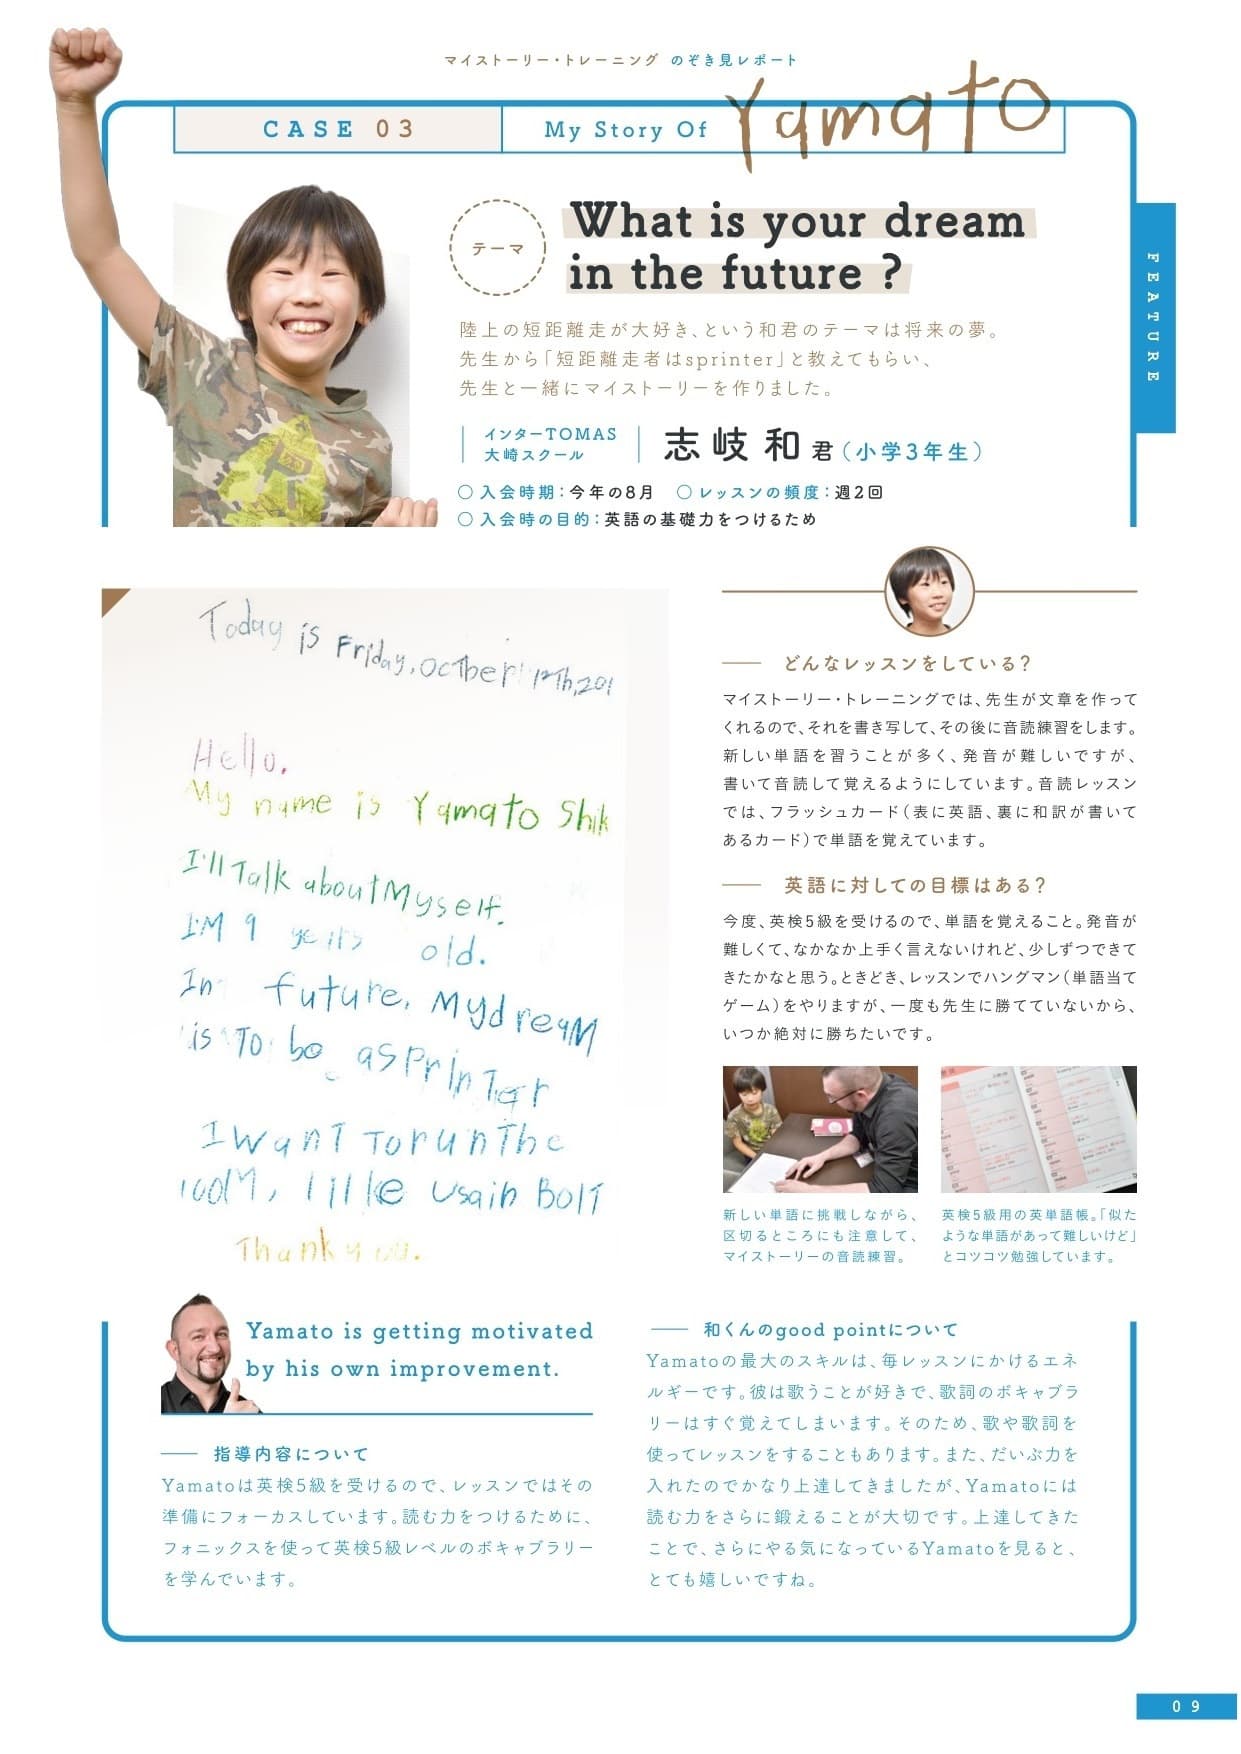 マイストーリー・トレーニング のぞき見レポート
CASE 03
My Story Of Yamato
テーマ
What is your dream
in the future ?
陸上の短距離走が大好き、という和君のテーマは将来の夢。
先生から「短距離走者はsprinter」と教えてもらい、
先生と一緒にマイストーリーを作りました。
インターTOMAS
大崎スクール
志岐 和 君（小学3年生）
○ 入会時期：今年の8月 ○ レッスンの頻度：週2回
○ 入会時の目的：英語の基礎力をつけるため
FEATURE
Today is Friday, octber 12Th, 201
Hello.
My name is Yamato Shik
I'll Talk about Myself.
I'M 9 years old.
In future, My dreaM
is To be a sprinTer
I wanT To run The
100M, like Usain BolT
Thank you.
どんなレッスンをしている？
マイストーリー・トレーニングでは、先生が文章を作って
くれるので、それを書き写して、その後に音読練習をします。
新しい単語を習うことが多く、発音が難しいですが、
書いて音読して覚えるようにしています。音読レッスン
では、フラッシュカード（表に英語、裏に和訳が書いて
あるカード）で単語を覚えています。
英語に対しての目標はある？
今度、英検5級を受けるので、単語を覚えること。発音が
難しくて、なかなか上手く言えないけれど、少しずつできて
きたかなと思う。ときどき、レッスンでハングマン（単語当て
ゲーム）をやりますが、一度も先生に勝てていないから、
いつか絶対に勝ちたいです。
新しい単語に挑戦しながら、
区切るところにも注意して、
マイストーリーの音読練習。
英検5級用の英単語帳。「似た
ような単語があって難しいけど」
とコツコツ勉強しています。
Yamato is getting motivated
by his own improvement.
指導内容について
Yamatoは英検5級を受けるので、レッスンではその
準備にフォーカスしています。読む力をつけるために、
フォニックスを使って英検5級レベルのボキャブラリー
を学んでいます。
和くんのgood pointについて
Yamatoの最大のスキルは、毎レッスンにかけるエネ
ルギーです。彼は歌うことが好きで、歌詞のボキャブラ
リーはすぐ覚えてしまいます。そのため、歌や歌詞を
使ってレッスンをすることもあります。また、だいぶ力を
入れたのでかなり上達してきましたが、Yamatoには
読む力をさらに鍛えることが大切です。上達してきた
ことで、さらにやる気になっているYamatoを見ると、
とても嬉しいですね。
09